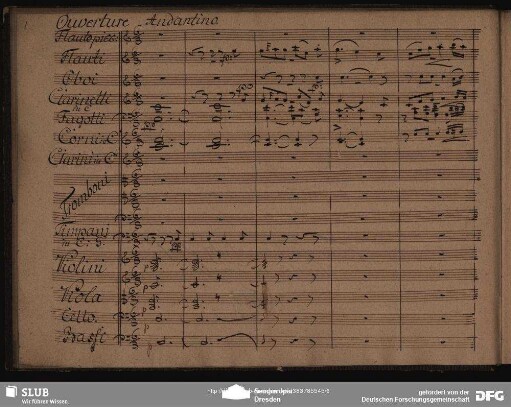 Ouverture - Andantino
Flauto picc:
Flauti
Oboi
Clarinetti
in C
Fagotti
Corni in C
Clarini in C
Tromboni
Timpani
in C. G.
Violini
Viola
Cello.
Bassi
SLUB
Wir führen Wissen.
Dresden
gefördert von der
Deutschen Forschungsgemeinschaft
DFG